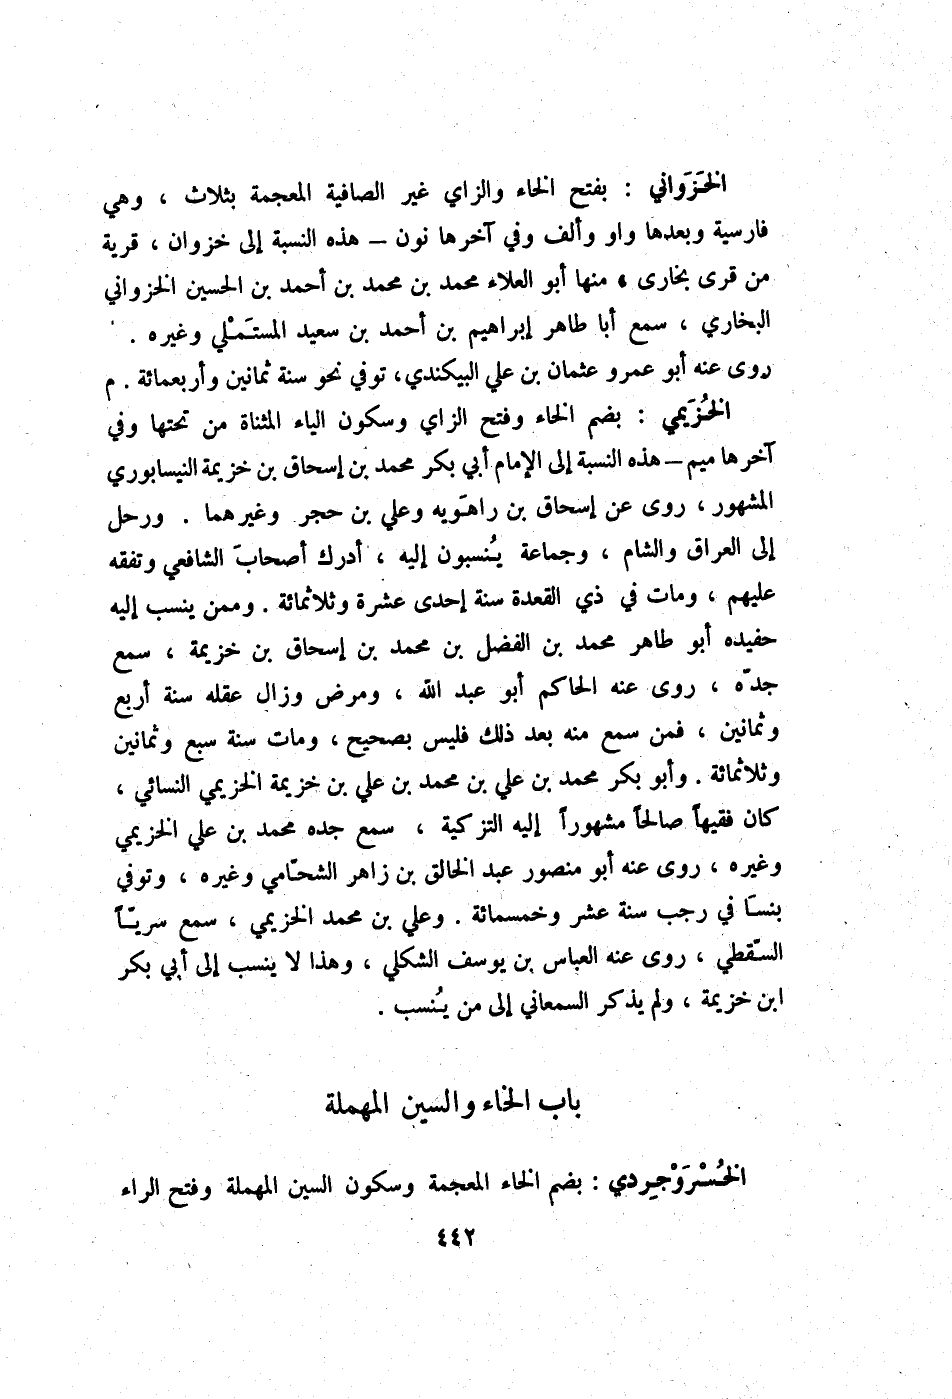 الخَزَواني : بفتح الخاء والزاي غير الصافية المعجمة بثلاث ، وهي
فارسية وبعدها واو وألف وفي آخرها نون – هذه النسبة إلى خزوان ، قرية
من قرى بخارى ، منها أبو العلاء محمد بن محمد بن أحمد بن الحسين الخزواني
البخاري ، سمع أبا طاهر إبراهيم بن أحمد بن سعيد المستَمْلي وغيره .
روى عنه أبو عمرو عثمان بن علي البيكندي، توفي نحو سنة ثمانين وأربعمائة . م
الخُزَيمي : بضم الخاء وفتح الزاي وسكون الياء المثناة من تحتها وفي
آخرها ميم – هذه النسبة إلى الإمام أبي بكر محمد بن إسحاق بن خزيمة النيسابوري
المشهور ، روى عن إسحاق بن راهَويه وعلي بن حجر وغيرهما . ورحل
إلى العراق والشام ، وجماعة يُنسبون إليه ، أدرك أصحابَ الشافعي وتفقه
عليهم ، ومات في ذي القعدة سنة إحدى عشرة وثلاثمائة . وممن ينسب إليه
حفيده أبو طاهر محمد بن الفضل بن محمد بن إسحاق بن خزيمة ، سمع
جدّه ، روى عنه الحاكم أبو عبد الله ، ومرض وزال عقله سنة أربع
وثمانين ، فمن سمع منه بعد ذلك فليس بصحيح ، ومات سنة سبع وثمانين
وثلاثمائة . وأبو بكر محمد بن علي بن محمد بن علي بن خزيمة الخزيمي النسائي ،
كان فقيهاً صالحاً مشهوراً إليه التزكية ، سمع جده محمد بن علي الخزيمي
وغيره ، روى عنه أبو منصور عبد الخالق بن زاهر الشحّامي وغيره ، وتوفي
بنسَا في رجب سنة عشر وخمسمائة . وعلي بن محمد الخزيمي ، سمع سريّاً
السّقطي ، روى عنه العباس بن يوسف الشكلي ، وهذا لا ينسب إلى أبي بكر
ابن خزيمة ، ولم يذكر السمعاني إلى من يُنسب .
باب الخاء والسين المهملة
الخُسْرَوْجِردي : بضم الخاء المعجمة وسكون السين المهملة وفتح الراء
٤٤٢